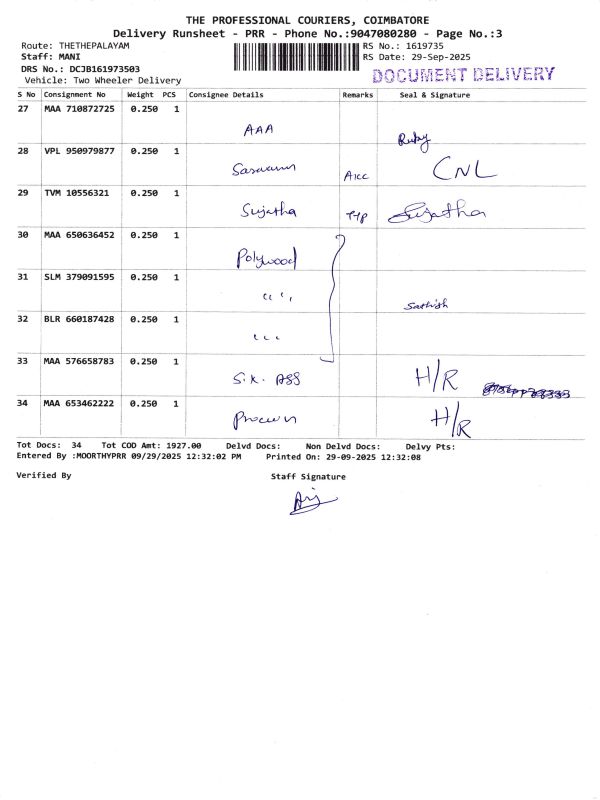 THE PROFESSIONAL COURIERS, COIMBATORE
Delivery Runsheet - PRR - Phone No.:9047080280 - Page No.:3
Route: THETHEPALAYAM RS No.: 1619735
Staff: MANI RS Date: 29-Sep-2025
DRS No.: DCJB161973503
Vehicle: Two Wheeler Delivery DOCUMENT DELIVERY
S No Consignment No Weight PCS Consignee Details Remarks Seal & Signature
27 MAA 710872725 0.250 1
AAA Ruby
28 VPL 950979877 0.250 1
CNL
29 TVM 10556321 0.250 1
Sujatha Sujatha
30 MAA 650636452 0.250 1
Polywood
31 SLM 379091595 0.250 1
" " Sathish
32 BLR 660187428 0.250 1
33 MAA 576658783 0.250 1
S.K. ASS H/R
34 MAA 653462222 0.250 1
H/R
Tot Docs: 34 Tot COD Amt: 1927.00 Delvd Docs: Non Delvd Docs: Delvy Pts:
Entered By :MOORTHYPRR 09/29/2025 12:32:02 PM Printed On: 29-09-2025 12:32:08
Verified By Staff Signature